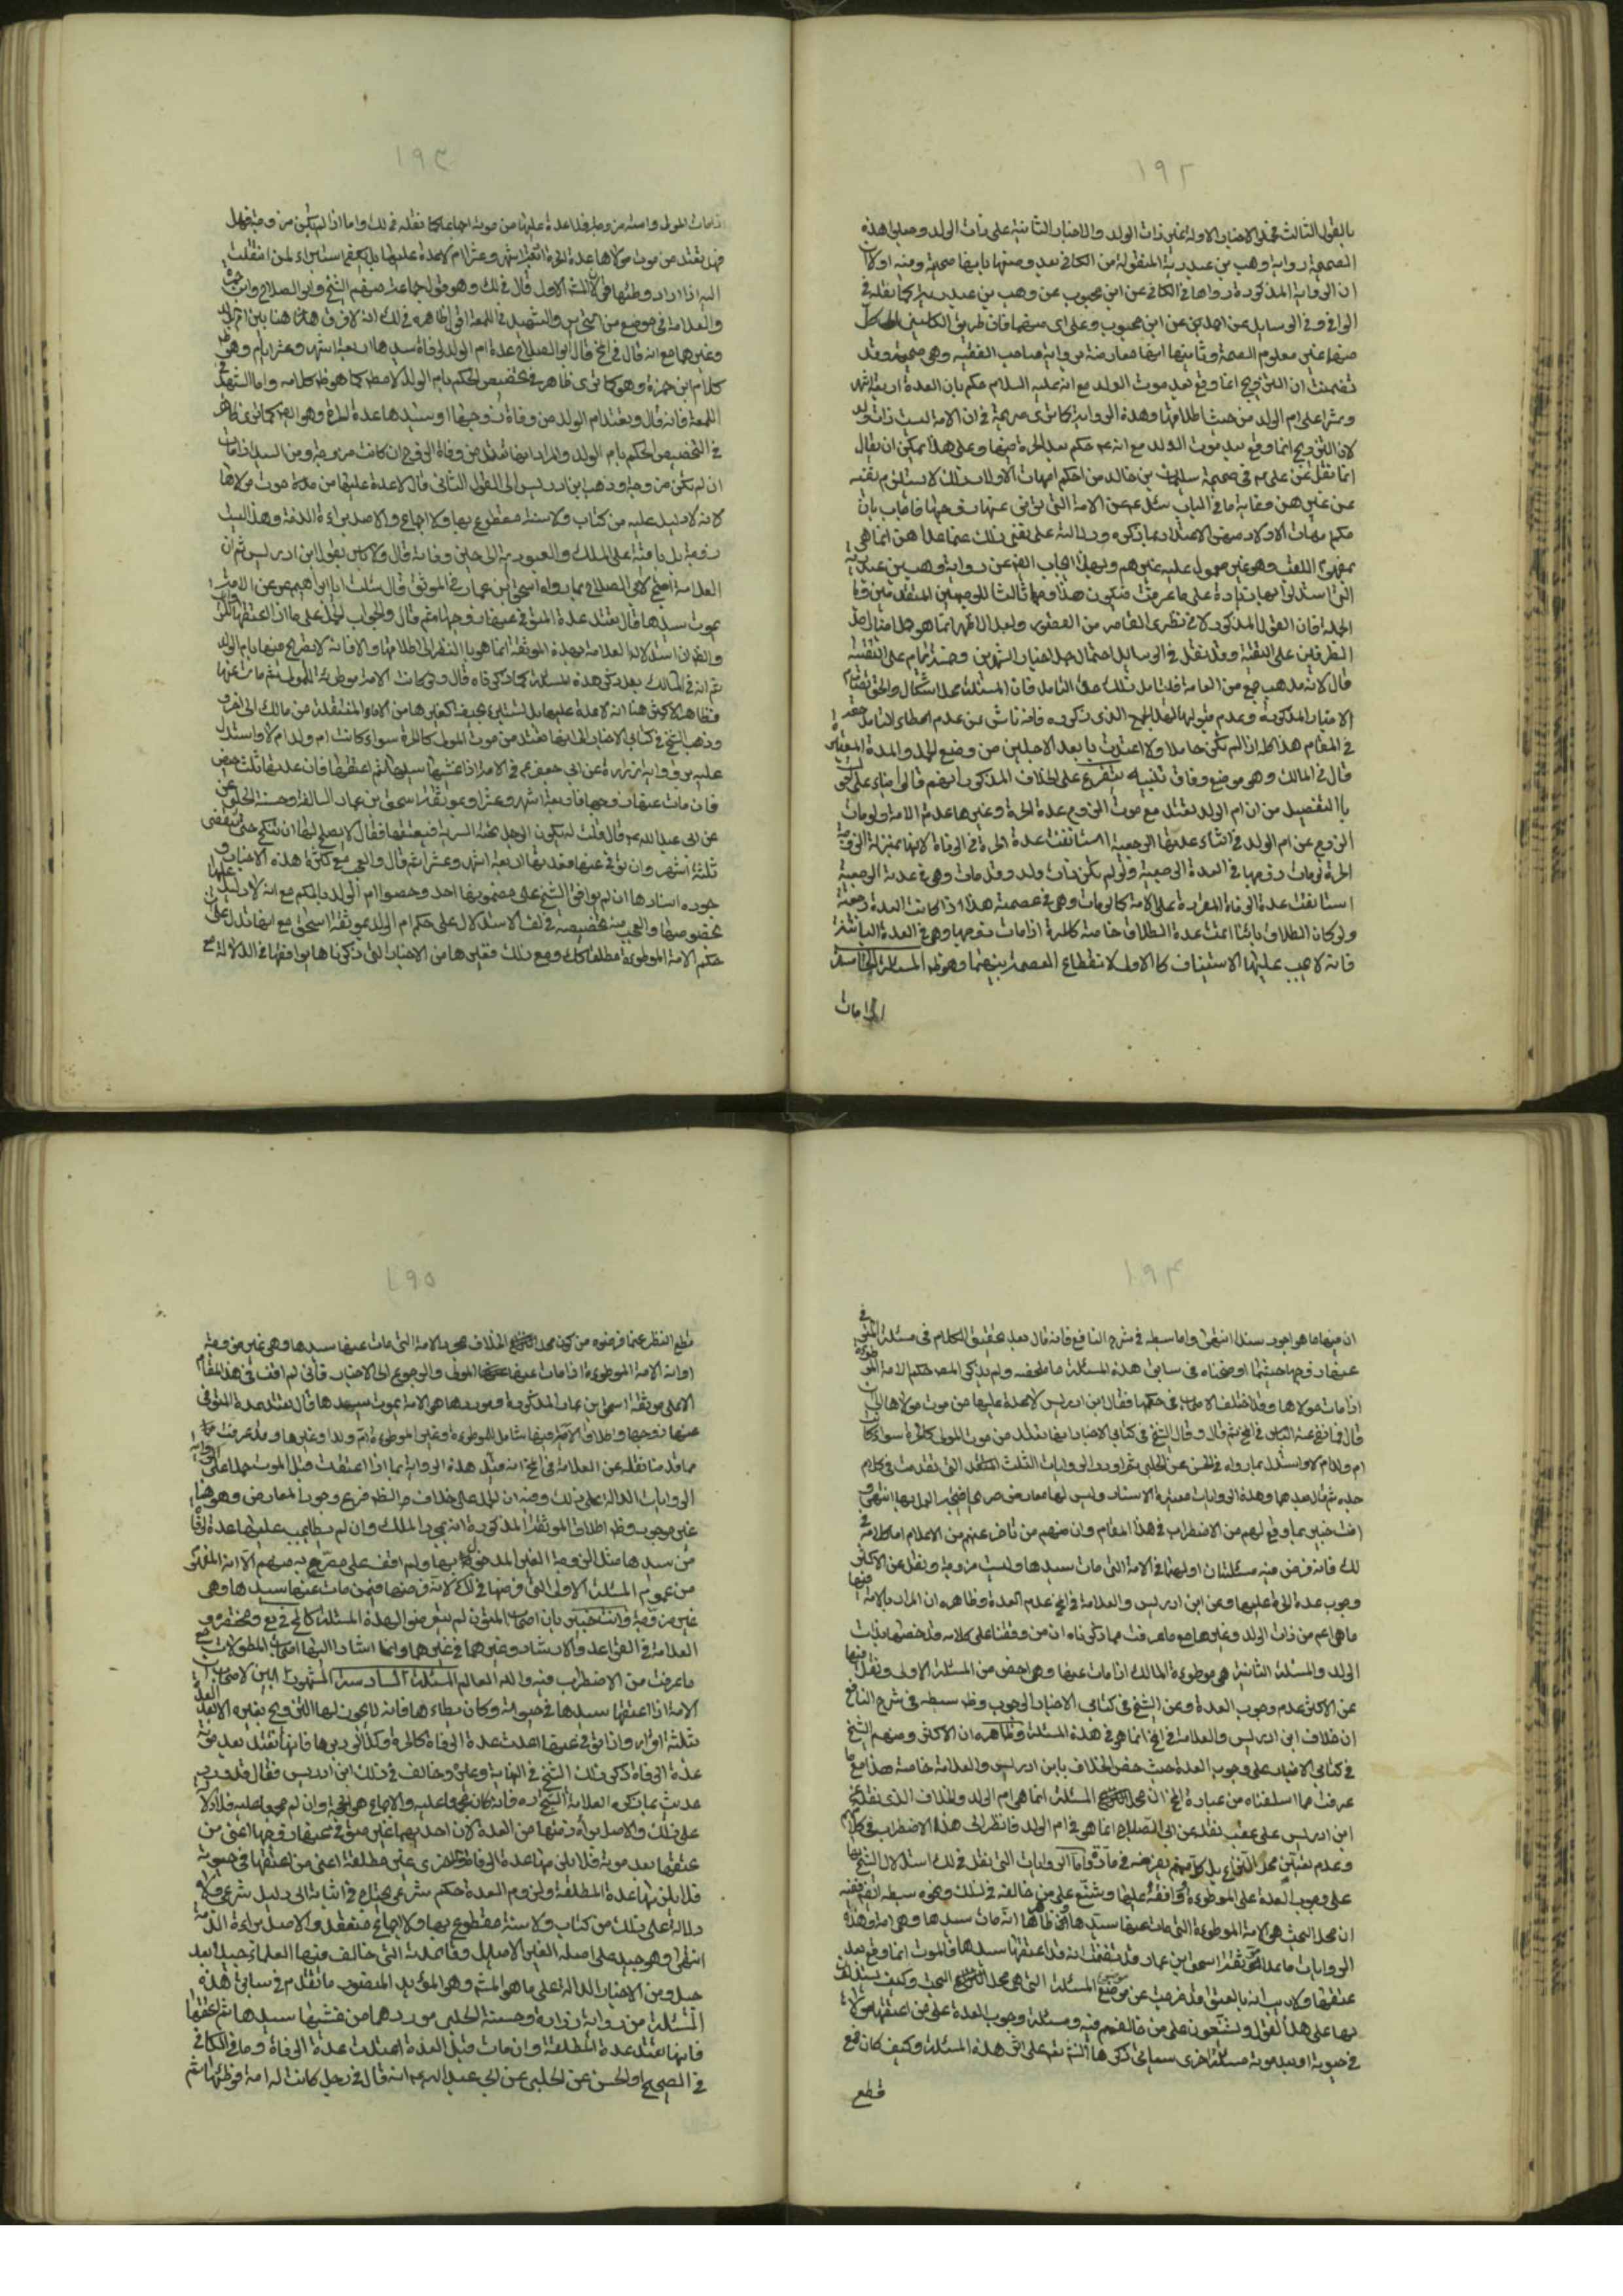 ١٩٢
بالقول الثالث فحمل الاخبار الاولة بغير ذات الولد والاخبار الثانية على ذات الولد وجعلوا هذه
الصحيحة رواية وهب بن عبد ربه المنقولة من الكافي بعد وصفها بانها صحيحة وفيه اولا
ان الرواية المذكورة رواها في الكافي عن ابن محبوب عن وهب بن عبد ربه كما نقله في
الوافي وفي الوسايل عن احمد بن عن ابن محبوب وعلى اي منهما فان طريق الكليني الى كل
منهما غير معلوم الصحة وثانيها انها معارضة برواية صاحب الفقيه وهي صحيحة وقد
تضمنت ان التزويج انما وقع بعد موت الولد مع انه عليه السلام حكم بان العدة اربعة اشهر
وعشرا على ام الولد من حيث اطلاقها وهذه الرواية كما ترى صريحة في ان الامة ليست ذات ولد
لان التزويج انما وقع بعد موت الولد مع انه ع حكم بعد الحرة فيها وعلى هذا يمكن ان يقال
انما نقل عن علي ع في صحيحة سليمان بن خالد من احكم امهات الاولاد بذلك لا يستلزم نفيه
عن غيرهن وغاية ما في الباب سئل ع عن الامة التي توفى عنها زوجها فاجاب بان
حكم امهات الاولاد منهن الاعتداد بما ذكره ودلالته على نفي ذلك عما عداهن انما هي
بمفهوم اللقب وهو غير معمول عليه عندهم وبهذا يجاب ايضا عن رواية وهب بن عبد ربه
التي استدلوا بها زيادة على ما عرفت فيكون هذا وجها ثالثا للوجهين المتقدمين وبا
الجملة فان القول المذكور لا في نظري القاصر من القصور ولعل الاقرب انما هو حمل اخبار احد
الطرفين على التقية وقد نقل في الوسايل احتمال حمل اخبار الشهرين وخمسة ايام على التقية
قال لانه مذهب جمع من العامة فليتامل في ذلك حق التامل فان المسئلة محل اشكال والحق تصادم
الاخبار المذكورة وعدم قبولها لهذا الجمع الذي ذكروه فانه ناش عن عدم اعطاء التامل حقه
في المقام هذا كله اذا لم تكن حاملا والا اعتدت بابعد الاجلين من وضع الحمل والمدة المعتبرة
قال في المسالك وهو موضع وفاق تنبيه يتفرع على الخلاف المذكور انهم قالوا بناء على القول
بالتفصيل من ان ام الولد تعتد مع موت الزوج عدة الحرة وغيرها عدة الامة ولو مات
الزوج عن ام الولد في اثناء عدتها الرجعية استانفت عدة الحرة في الوفاة لانها بمنزلة الزوجة
الحرة لو مات زوجها في العدة الرجعية ولو لم تكن ذات ولد وقد مات وهي في عدة الرجعية
استانفت عدة الوفاة المقررة على الامة كما لو مات وهي في عصمته هذا اذا كانت العدة رجعية
ولو كان الطلاق باينا اتمت عدة الطلاق خاصة كالحرة اذا مات زوجها وهي في العدة الباينة
فانه لا يجب عليها الاستيناف كالاول لانقطاع العصمة بينهما وهو ظ المسئلة الخامسة
اذا مات
١٩٣
اذا مات المولى وامته مزوجة فلا عدة عليها من موته اجماعا كما نقله في لك واما اذا لم تكن مزوجة فهل
فهل تعتد من موت مولاها عدة الحرة اربعة اشهر وعشرا ام لا عدة عليها بل يكفي استبراء لمن انتقلت
اليه اذا اراد وطئها قولان المشهور الاول قال في لك وهو قول جماعة منهم الشيخ وابو الصلاح وابن حمزة
والعلامة في موضع من التحرير والشهيد في اللمعة اقول ظاهره في لك انه لا فرق هنا بين ام الولد
وغيرها مع انه قال في المخ قال ابو الصلاح عدة ام الولد لوفاة سيدها اربعة اشهر وعشرة ايام وهو
كلام ابن حمزة وهو كما ترى ظاهر في تخصيص الحكم بام الولد لا مطلقا كما هو ظ كلامه واما الشهيد في
اللمعة فانه قال وتعتد ام الولد من وفاة زوجها او سيدها عدة الحرة وهو ايضا كما ترى ظاهر
في التخصيص الحكم بام الولد والمراد انها تعتد من وفاة الزوج ان كانت مزوجة ومن السيد اذا مات
ان لم تكن مزوجة وذهب ابن ادريس الى القول الثاني قال لا عدة عليها من موت مولاها
لانه لا دليل عليه من كتاب ولا سنة مقطوع بها ولا اجماع والاصل براءة الذمة وهذا ليست
زوجة بل باقية على الملك والعبودية الى حين وفاته قال ولا باس بقول ابن ادريس ثم ان
العلامة احتج لابي الصلاح بما رواه اسحق بن عمار في الموثق قال سئلت ابا ابراهيم ع عن الامة
يموت سيدها قال تعتد عدة المتوفى عنها زوجها ثم قال والجواب الحمل على ما اذا اعتقها
والظ ان استدلال العلامة بهذه الموثقة انما هو بالنظر الى اطلاقها والا فانه لا تصريح فيها بام الولد
ثم انه في المسالك بعد ذكر هذه المسئلة كما ذكرناه قال ولو كانت الامة موطوئة للمولى ثم مات عنها
فظاهر الاكثر هنا انه لا عدة عليها بل تستبرئ بحيضة كغيرها من الاماء المنتقلة من مالك الى اخر
وذهب الشيخ في كتابي الاخبار الى انها تعتد من موت المولى كالحرة سواء كانت ام ولد ام لا واستدل
عليه بر واية زرارة عن ابي جعفر ع في الامة اذا غشيها سيدها ثم اعتقها فان عدتها ثلث حيض
فان مات عنها زوجها فاربعة اشهر وعشرا وبموثقة اسحق بن عمار السالفة وحسنة الحلبي
عن ابي عبد الله ع قال قلت له يكون الرجل تحته السرية فيعتقها فقال لا يصلح لها ان تنكح حتى تنقضي
ثلثة اشهر وان توفى عنها فعدتها اربعة اشهر وعشر ثم قال والعجب مع كثرة هذه الاخبار و
جودة اسنادها انه لم يوافق الشيخ على مضمونها احد وخصوا ام الولد بالحكم مع انه لا دليل عليها
بخصوصها والعجب منه تخصيصه في لف الاستدلال على حكم ام الولد بموثقة اسحق مع انها تدل على
حكم الامة الموطوءة مطلقا كك ومع ذلك فغيرها من الاخبار التي ذكرناها يوافقها في الدلالة مع
١٩٤
ان فيها ما هو اجود سندا انتهى واما سبطه في شرح النافع فانه قال بعد تحقيق الكلام في مسئلة المتوفى
عنها زوجها حيثما اوضحناه في سابق هذه المسئلة ما ملخصه ولم يذكر المصنف حكم الامة الموطوءة
اذا مات مولاها وقد اختلف الاصحاب في حكمها فقال ابن ادريس لا عدة عليها من موت مولاها
قال ونفى عنه الباس في المخ ثم قال وقال الشيخ في كتابي الاخبار انها تعتد من موت المولى كالحرة سواء كانت
ام ولد ام لا واستدل بما رواه في الحسن عن الحلبي ثم اورد الروايات الثلث المتقدم التي تقدمت في كلام
جده ثم قال بعدها وهذه الروايات معتبرة الاسناد وليس لها معارض صريحا فيتجه العمل بها انتهى
انت خبير بما وقع لهم من الاضطراب في هذا المقام وان منهم من تاخر عنهم من الاعلام اما كلامه في
لك فانه فرض فيه مسئلتان اوليهما في الامة التي مات سيدها وليست مزوجة ونقل عن الاكثر
وجوب عدة الحرة عليها وعن ابن ادريس والعلامة في المخ عدم العدة وظاهره ان المراد بالامة فيها
ما هي اعم من ذات الولد وغيرها مع ما عرفت مما ذكرناه ان من وقفنا على كلامه قد خصها بذات
الولد والمسئلة الثانية هي موطوءة المالك اذا مات عنها وهي اخص من المسئلة الاولى ونقل فيها
عن الاكثر عدم وجوب العدة وعن الشيخ في كتابي الاخبار الوجوب وظ سبطه في شرح النافع
ان خلاف ابن ادريس والعلامة في المخ انما هي في هذه المسئلة وظاهره ان الاكثر ومنهم الشيخ
في كتابي الاخبار على وجوب العدة حيث خص الخلاف بابن ادريس والعلامة خاصة هذا مع ما
عرفت مما اسلفناه من عبارة المخ ان محل المسئلة انما هي ام الولد والخلاف الذي نقله عن
ابن ادريس على عقيب نقله عن ابي الصلاح انما هي في ام الولد فانظر الى هذا الاضطراب في كلامهم
وعدم تعيين محل النزاع بل كل منهم يفرضه في مادة واما الروايات التي نقل في لك استدلال الشيخ بها
على وجوب العدة على الموطوءة ووافقه عليها وشنع على من خالفه في ذلك ونحوه سبطه ايضا ففيه
ان محل البحث هي الامة الموطوءة التي مات عنها سيدها وظاهرها انه مات سيدها وهي امة وهذه
الروايات ما عدا موثقة اسحق بن عمار قد تضمنت انه قد اعتقها سيدها فالموت انما وقع بعد
عتقها ولا ريب انه بالعتق قد خرجت عن موضع المسئلة التي هي محل البحث وكيف يستدلون
بها على هذا القول ويشنعون على من خالفهم فيه ومسئلة وجوب العدة على من اعتقها مولاها
في حيوته او بعد موته مسئلة اخرى سياتي ذكرها انشاء الله تعالى على اثر هذه المسئلة وكيف كان فمع
قطع
١٩٥
قطع النظر عما فرضوه من كون محل الخلاف هو الامة التي مات عنها سيدها وهي غير مزوجة
او انه الامة الموطوءة اذا مات عنها المولى والرجوع الى الاخبار فاني لم اقف في هذا المقام
الا على موثقة اسحق بن عمار المذكورة وموردها هي الامة يموت سيدها قال تعتد عدة المتوفى
عنها زوجها واطلاق الامة فيها شامل للموطوءة وغير الموطوءة ام ولد او غيرها وقد عرفت مما
مما قدمنا نقله عن العلامة في المخ انه قيد هذه الرواية بما اذا اعتقت قبل الموت حملا على
الروايات الدالة على ذلك وفيه ان الحمل على خلاف الظ فرع وجود المعارض وهو هنا
غير موجود وظ اطلاق الموثقة المذكورة انه بمجرد الملك وان لم يطا يجب عليها عدة الوفاة
من سيدها مثل الزوجة الغير المدخول بها ولم اقف على مصرح به منهم الا انه المفهوم
من عموم المسئلة الاولى التي فرضها في لك لانه فرضها فيمن مات عنها سيدها وهي
غير مزوجة وانت خبير بان اصحاب المتون لم يتعرضوا لهذه المسئلة كالمحقق في يع ومختصره و
العلامة في القواعد والارشاد وغيرهما في غيرها وانما اشار اليها اصحاب المطولات مع
ما عرفت من الاضطراب فيه والله العالم المسئلة السادسة المشهور بين الاصحاب ان
الامة اذا اعتقها سيدها في حيوته وكان يطاءها فانه لا يجوز لها التزويج بغيره الا بعد العدة
بثلثة اقراء واذا توفى عنها اعتدت عدة الوفاة كالحرة وكذا لو دبرها فانها تعتد بعد موته
عدة الوفاة ذكر ذلك الشيخ في النهاية وغيره وخالف في ذلك ابن ادريس فقال قد ورد به
حديث بما ذكره العلامة الشيخ ره فان كان مجمعا عليه والاجماع هو الحجة وان لم مجمعا عليه فلا دلالة
على ذلك والاصل براءة ذمتها من العدة لان احديهما غير متوفى عنها زوجها اعني من
عتقها بعد موته فلا يلزمها عدة الوفاة والاخرى غير مطلقة اعني من اعتقها في حيوته
فلا يلزمها عدة المطلقة ولزوم العدة حكم شرعي يحتاج في اثباته الى دليل شرعي ولا
دلالة على ذلك من كتاب ولا سنة مقطوع بها ولا اجماع منعقد والاصل براءة الذمة
انتهى وهو جيد على اصله الغير الاصيل وقاعدته التي خالف فيها العلماء جيلا بعد
جيل ومن الاخبار الدالة على ما هو المشهور وهو المؤيد المنصور ما تقدم في سابق هذه
المسئلة من رواية زرارة وحسنة الحلبي موردهما من غشيها سيدها ثم اعتقها
فانها تعتد عدة المطلقة وان مات قبل العدة اعتدت عدة الوفاة وما في الكافي
في الصحيح او الحسن عن الحلبي عن ابي عبد الله ع انه قال في رجل كانت له امة فوطئها ثم